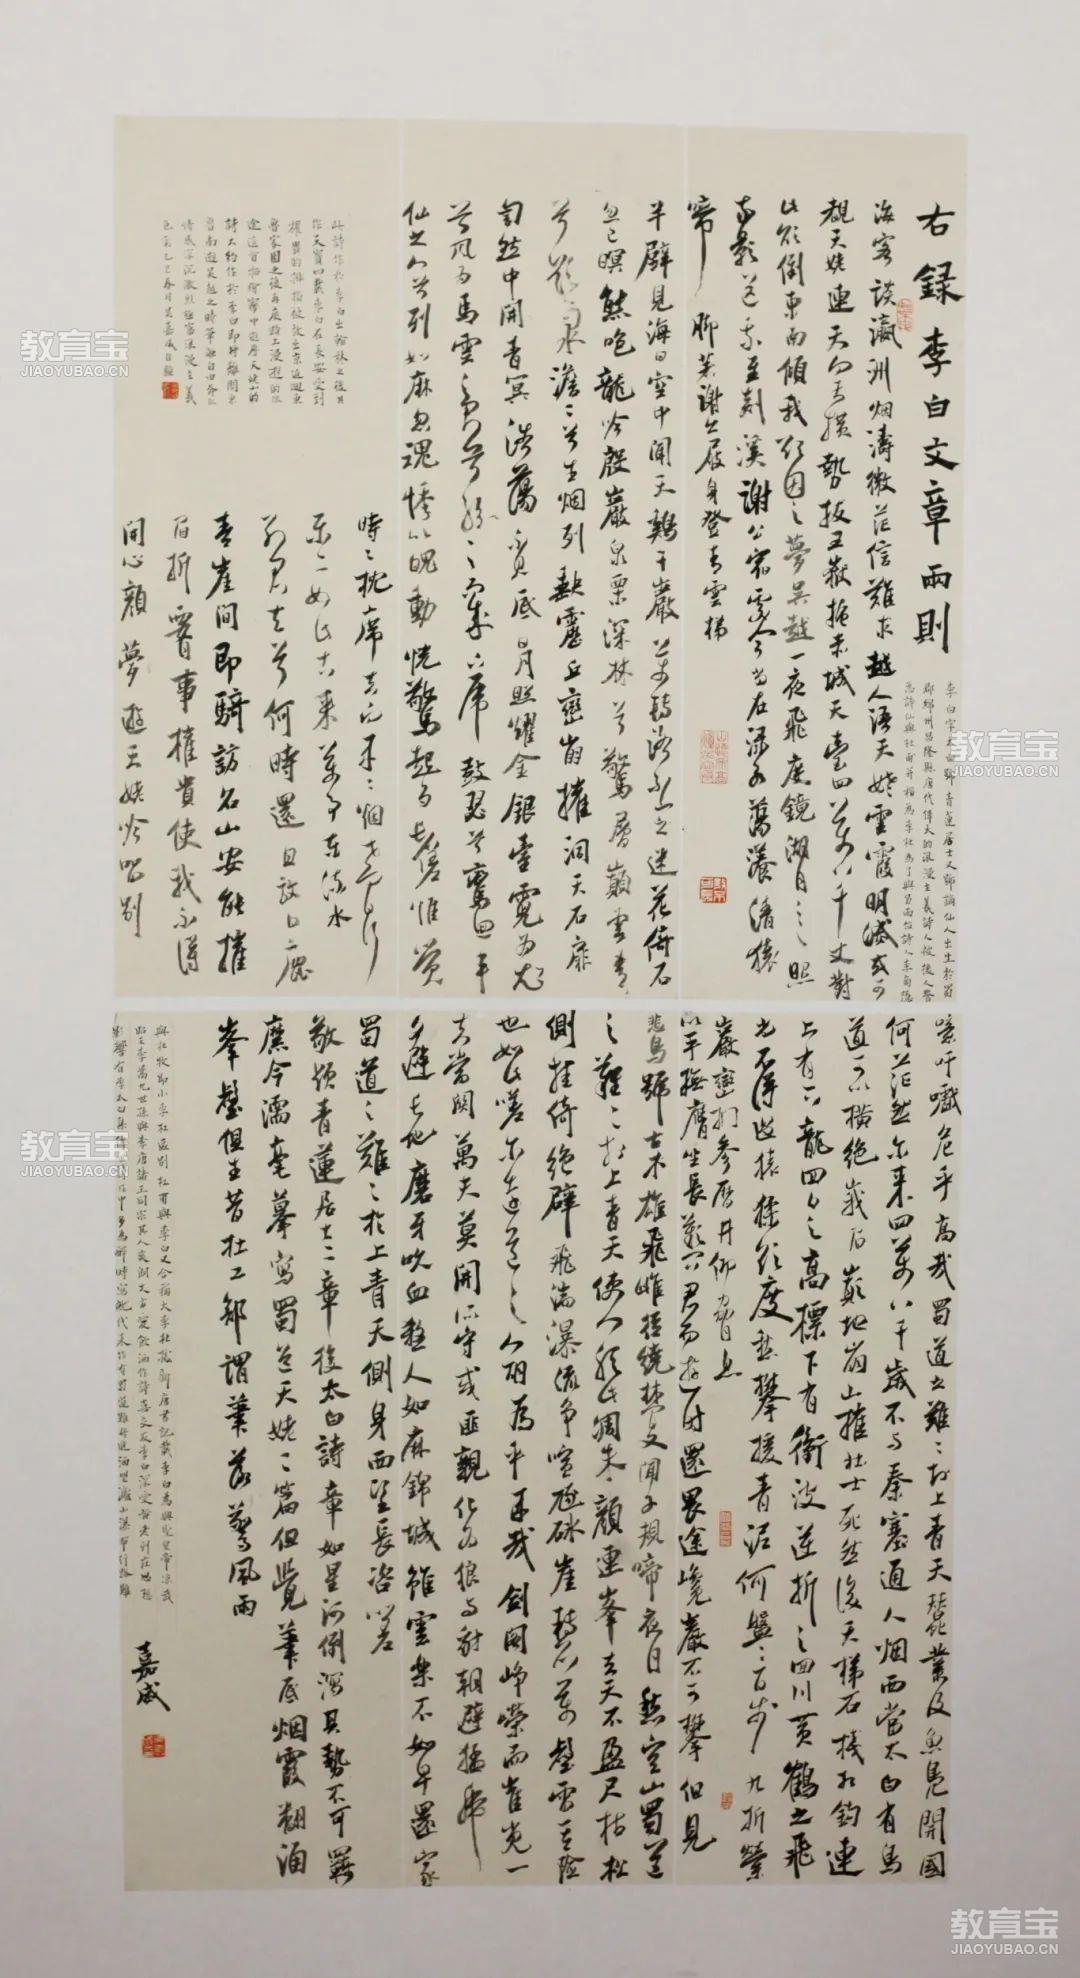 右錄李白文章兩則
李白字太白號青蓮居士又號謫仙人出生於蜀
郡綿州昌隆縣唐代偉大的浪漫主義詩人被後人譽
為詩仙與杜甫并稱為李杜為了與另兩位詩人李商隱
海客談瀛洲烟濤微茫信難求越人語天姥雲霞明滅或可
覩天姥連天向天橫勢拔五嶽掩赤城天臺四萬八千丈對
此欲倒東南傾我欲因之夢吳越一夜飛度鏡湖月〻照
我影送我至剡溪謝公宿處今尚在淥水蕩漾清猿
啼 脚著謝公屐身登青雲梯
半壁見海日空中聞天雞千巖萬轉路不定迷花倚石
忽已暝熊咆龍吟殷巖泉栗深林兮驚層巔雲青
兮欲雨水澹〻兮生烟列缺霹靂丘巒崩摧洞天石扉
訇然中開青冥浩蕩不見底日月照耀金銀臺霓為衣
兮風為馬雲之君兮紛〻而來下虎鼓瑟兮鸞回車
仙之人兮列如麻忽魂悸以魄動恍驚起而長嗟惟覺
時之枕席失向來之烟霞世間行
樂亦如此古來萬事東流水
別君去兮何時還且放白鹿
青崖間即騎訪名山安能摧
眉折腰事權貴使我不得
開心顏 夢遊天姥吟留別
此詩作於李白出翰林之後其
作天寶四載李白在長安受到
權貴的排擠被放出京返回東
魯家園之後再度踏上漫遊的旅
途這首描繪夢中遊歷天姥山的
詩大約作於李白即將離開東
魯南遊吳越之時
情感深沉激烈極富浪漫主義
色彩乙巳春月吳嘉威自題
噫吁嚱危乎高哉蜀道之難〻於上青天蠶叢及魚鳧開國
何茫然爾來四萬八千歲不與秦塞通人烟西當太白有鳥
道可以橫絕峨眉巔地崩山摧壯士死然後天梯石棧相鈎連
上有六龍回日之高標下有衝波逆折之回川黃鶴之飛
尚不得過猿猱欲度愁攀援青泥何盤〻百步九折縈
巖巒捫參歷井仰脅息
以手撫膺坐長歎問君西遊何時還畏途巉巖不可攀但見
悲鳥號古木雄飛雌從繞林間又聞子規啼夜月愁空山蜀道
之難〻於上青天使人聽此凋朱顏連峯去天不盈尺枯松
倒挂倚絕壁飛湍瀑流爭喧豗砯崖轉石萬壑雷其險
也如此嗟爾遠道之人胡為乎來哉劍閣崢嶸而崔嵬一
夫當關萬夫莫開所守或匪親化為狼與豺朝避猛虎
夕避長蛇磨牙吮血殺人如麻錦城雖雲樂不如早還家
蜀道之難〻於上青天側身西望長咨嗟
敬頌青蓮居士二章後太白詩章如星河倒瀉其勢不可羈
縻今濡毫摹寫蜀道天姥二篇但覺筆底烟霞翻涌
峯壑俱生昔杜工部謂筆落驚風雨
嘉威
與杜牧即小李杜區別杜甫與李白又合稱大李杜
教育宝
JIAOYUBAO.CN
教育宝
JIAOYUBAO.CN
教育宝
JIAOYUBAO.CN
教育宝
JIAOYUBAO.CN
教育宝
JIAOYUBAO.CN